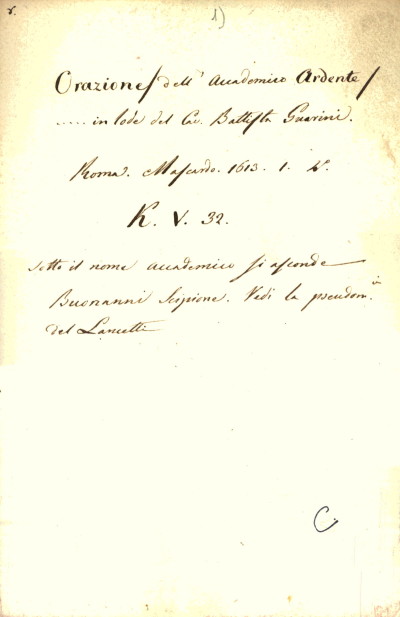 r.
1)
Orazione dell' Accademico Ardente
..... in lode del Cav. Battista Guarini.
Roma. Mascardo. 1613. 1. 4°.
K. V. 32.
sotto il nome accademico si asconde
Buonanni Scipione. Vedi la pseudon.ia
del Lancetti
C.